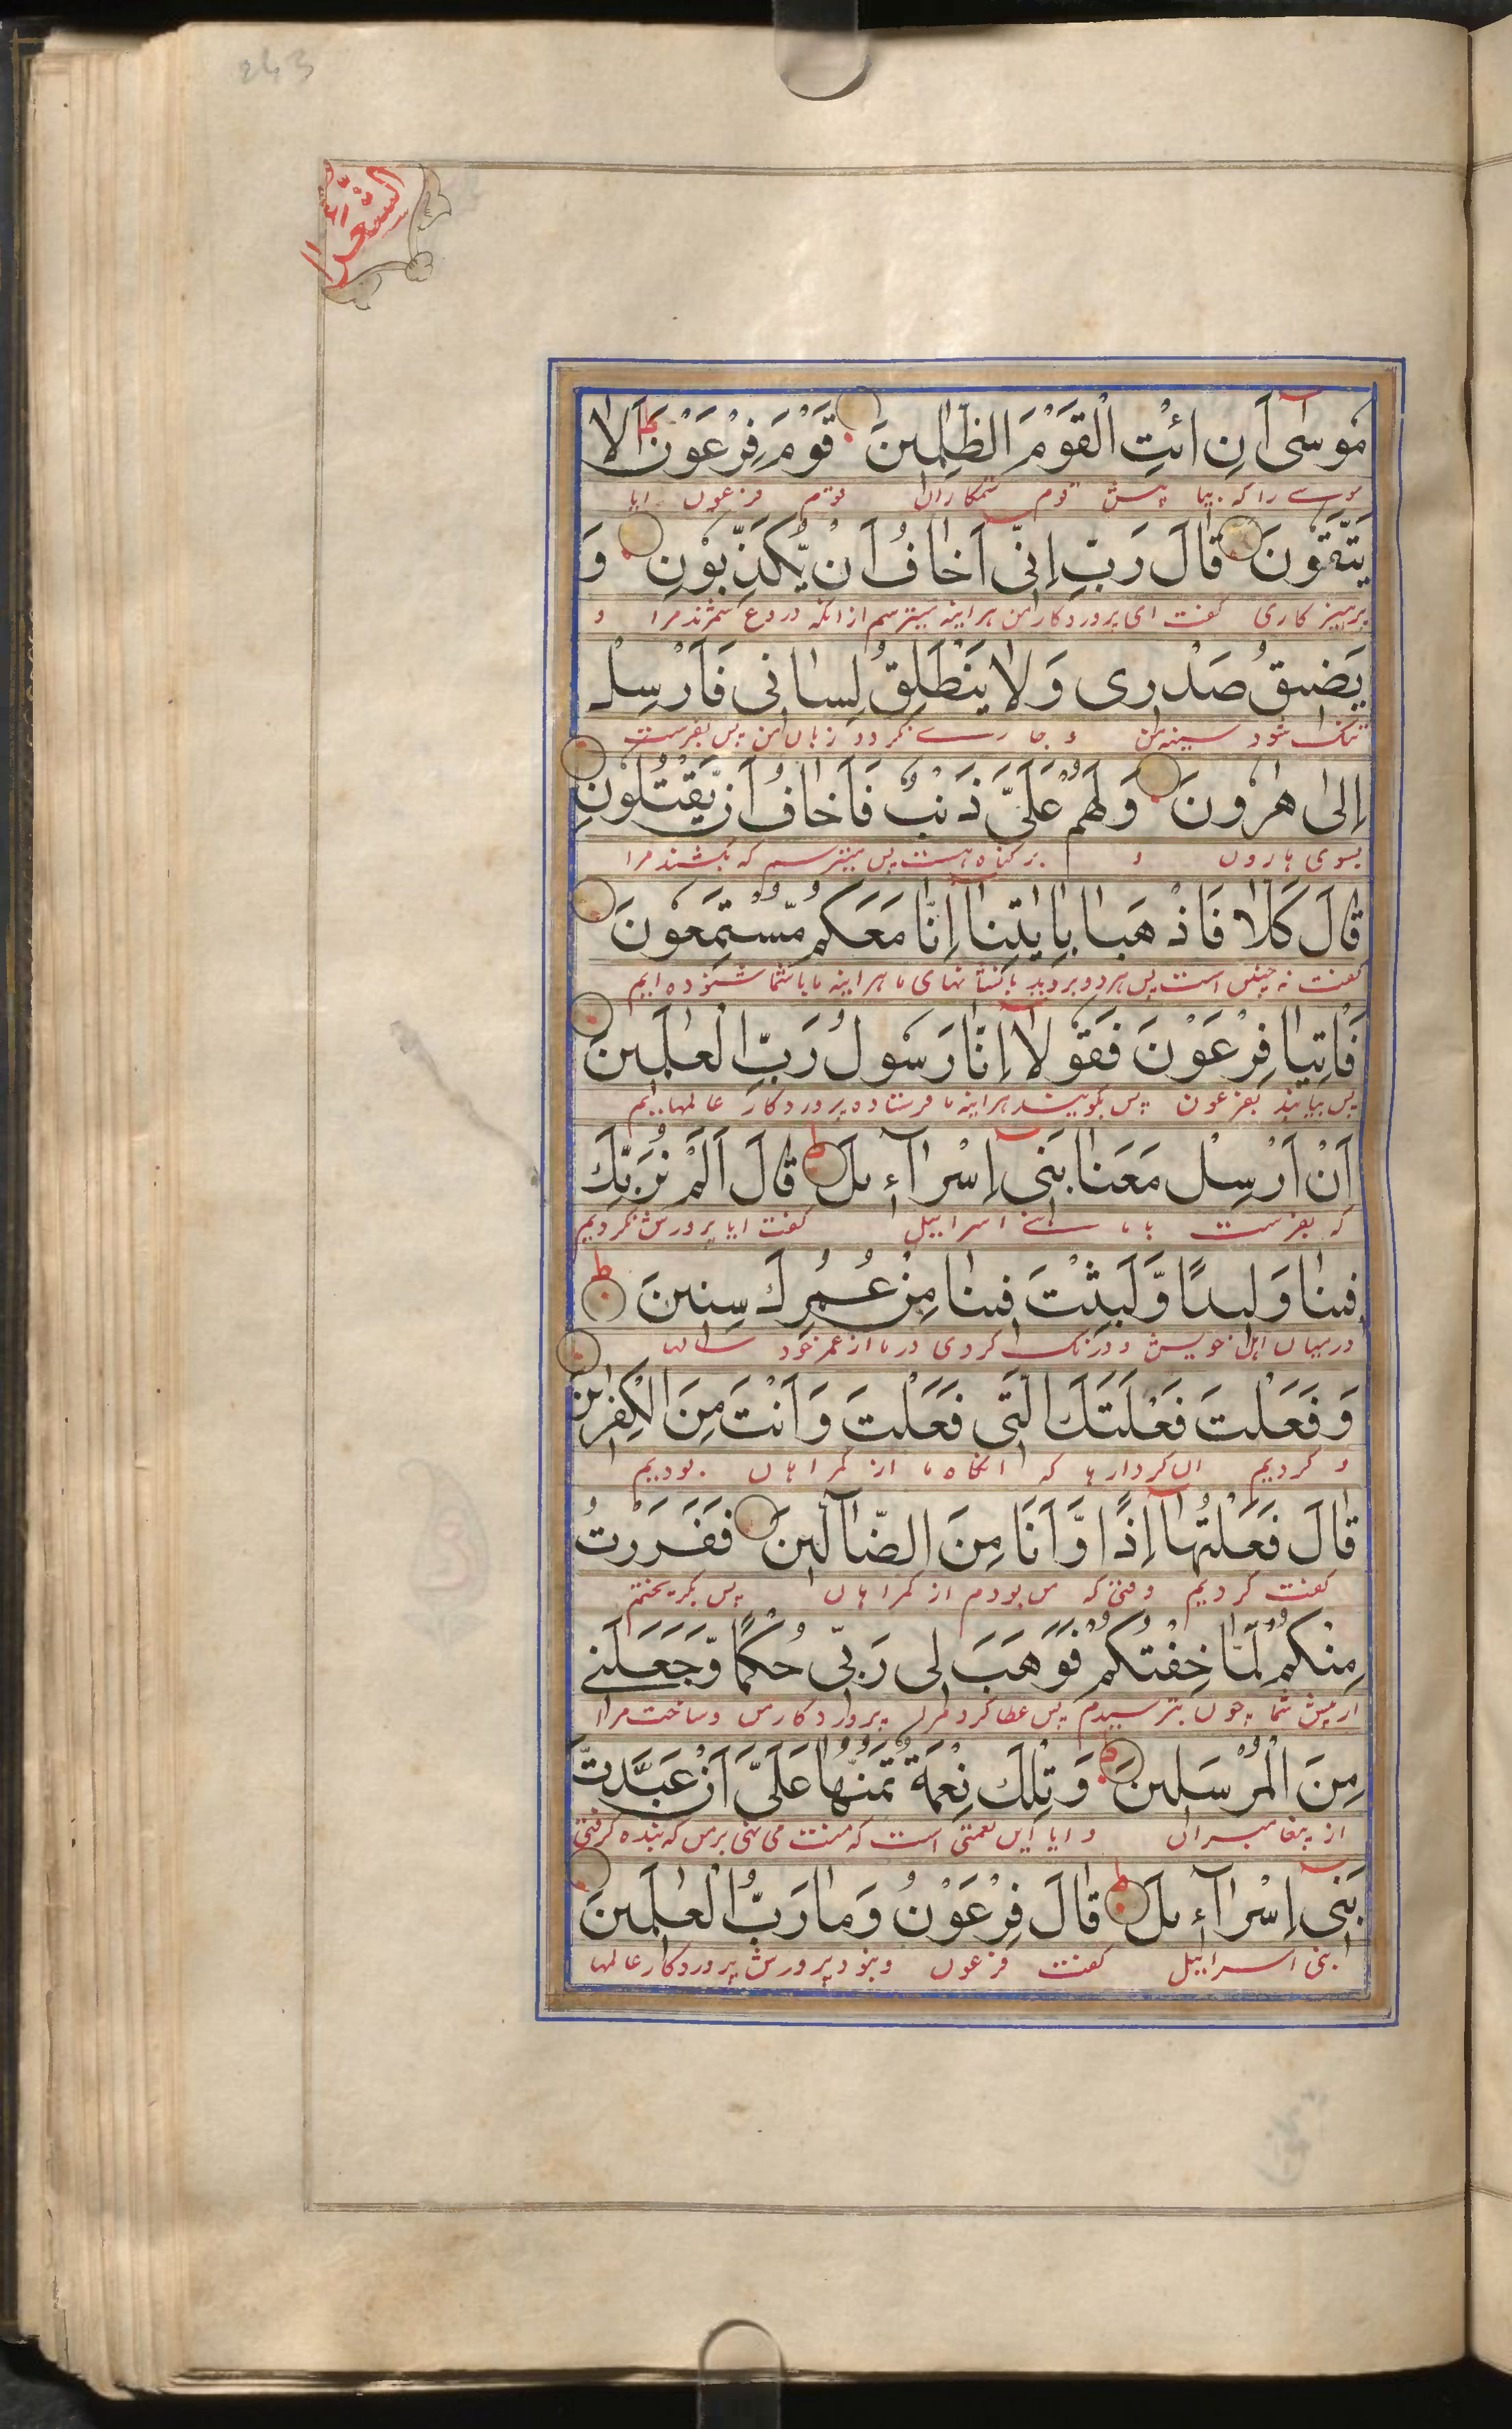 243
الشعراء
مُوسٰۤى اَنِ ائْتِ الْقَوْمَ الظّٰلِمِینَ قَوْمَ فِرْعَوْنَ اَلَا
موسے را که بیا پیش قوم ستمکاران قوم فرعون ایا
یَتَّقُونَ قَالَ رَبِّ اِنِّیۤ اَخَافُ اَنْ یُّكَذِّبُونِ وَ
پرهیز کاری گفت ای پروردگار من هراینه میترسم از انکه دروغ شمرند مرا و
یَضِیقُ صَدْرِی وَلَا یَنْطَلِقُ لِسَانِی فَاَرْسِلْ
تنک شود سینه من و جارے نگردد زبان من پس بفرست
اِلٰى هٰرُونَ وَلَهُمْ عَلَیَّ ذَنْبٌ فَاَخَافُ اَنْ یَّقْتُلُونِ
بسوی هارون و بر گناه هست پس میترسم که بکشند مرا
قَالَ كَلَّا فَاذْهَبَا بِاٰیٰتِنَاۤ اِنَّا مَعَكُمْ مُّسْتَمِعُونَ
گفت نه چنین است پس هر دو بروید با نشانهای ما هراینه ما با شما شنوده ایم
فَاْتِیَا فِرْعَوْنَ فَقُولَاۤ اِنَّا رَسُولُ رَبِّ الْعٰلَمِینَ
پس بیایند بفرعون پس بگویند هراینه ما فرستاده پروردکار عالمهاییم
اَنْ اَرْسِلْ مَعَنَا بَنِیۤ اِسْرَآءِیلَ قَالَ اَلَمْ نُرَبِّكَ
که بفرست با ما بنے اسراییل گفت ایا پرورش نکردیم
فِینَا وَلِیدًا وَّلَبِثْتَ فِینَا مِنْ عُمُرِكَ سِنِینَ
درمیان اهل خویش و درنک کردی در ما از عمر خود سالها
وَفَعَلْتَ فَعْلَتَكَ الَّتِی فَعَلْتَ وَاَنْتَ مِنَ الْكٰفِرِینَ
و کردیم ان کردارها که انکاه ما از گمراهان بودیم
قَالَ فَعَلْتُهَاۤ اِذًا وَّاَنَا مِنَ الضَّآلِّینَ فَفَرَرْتُ
گفت کردیم وقتی که من بودم از گمراهان پس بگریختم
مِنْكُمْ لَمَّا خِفْتُكُمْ فَوَهَبَ لِی رَبِّی حُكْمًا وَّجَعَلَنِی
از پیش شما چون بترسیدم پس عطا کرد مرا پروردکار من و ساخت مرا
مِنَ الْمُرْسَلِینَ وَتِلْكَ نِعْمَةٌ تَمُنُّهَا عَلَیَّ اَنْ عَبَّدْتَّ
از پیغامبران و ایا این نعمتی است که منت می نهی بر من که بنده گرفتی
بَنِیۤ اِسْرَآءِیلَ قَالَ فِرْعَوْنُ وَمَا رَبُّ الْعٰلَمِینَ
بنی اسراییل گفت فرعون و نبود پرورش پروردکار عالمها